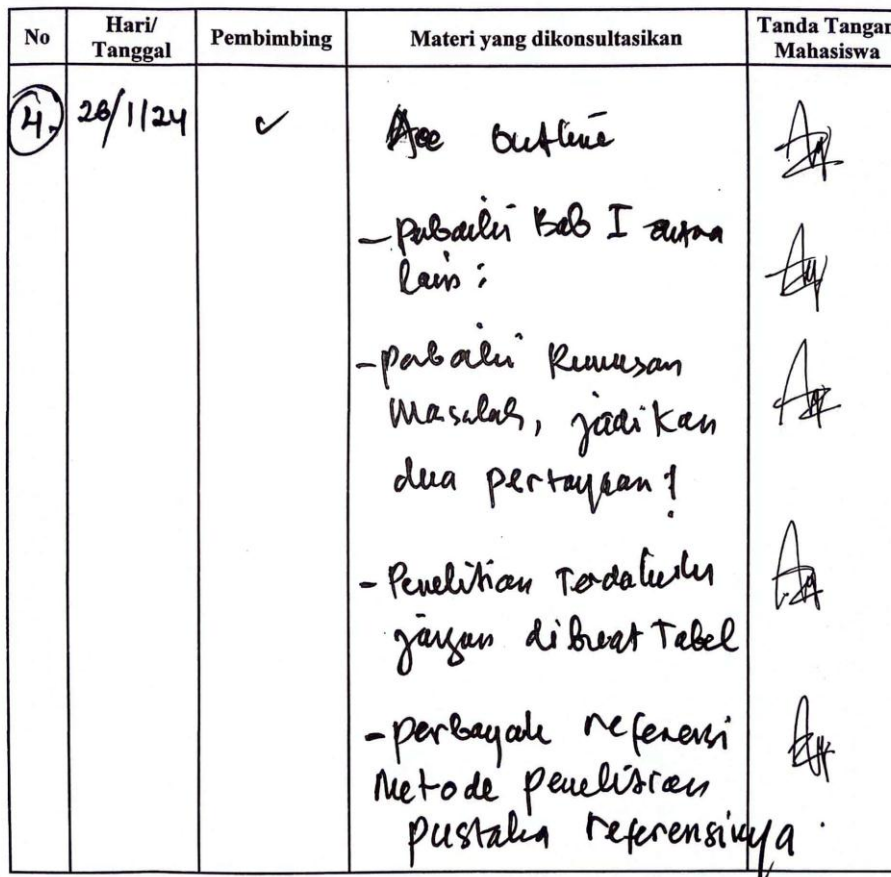 No Hari/ Tanggal Pembimbing Materi yang dikonsultasikan Tanda Tangan Mahasiswa
4. 26/1/24 ✓ Acc outline
- Perbaiki Bab I antara
lain :
- perbaiki Rumusan
Masalah, jadikan
dua pertayaan !
- Penelitian Terdahulu
jangan dibuat Tabel
- perbayak referensi
Metode penelitian
pustaka referensinya.